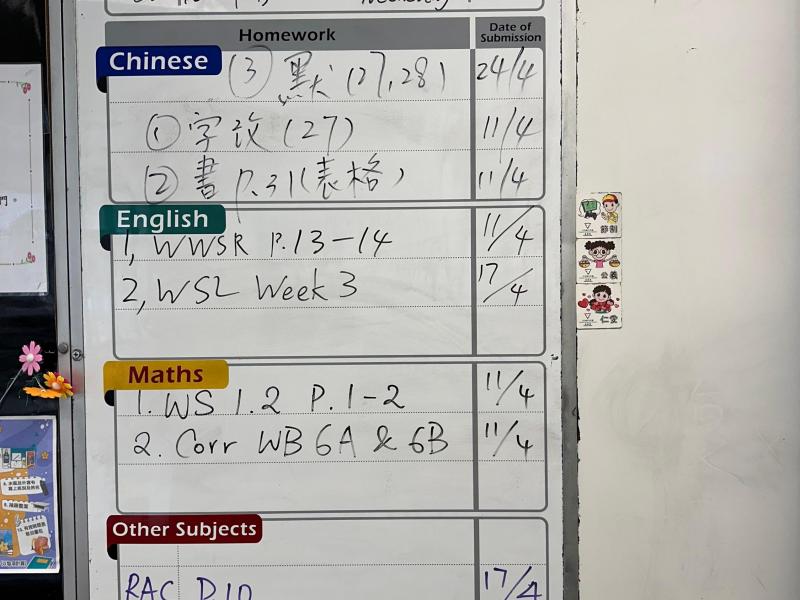 Homework Date of Submission
Chinese ③ 默 (27,28) 24/4
① 字改 (27) 11/4
② 書 P.31(表格) 11/4
English
1, WWSR P.13-14 11/4
2, WSL Week 3 17/4
Maths
1. WS 1.2 P.1-2 11/4
2. Corr WB 6A & 6B 11/4
Other Subjects
RAC P.10 17/4
節制
公義
仁愛
門。